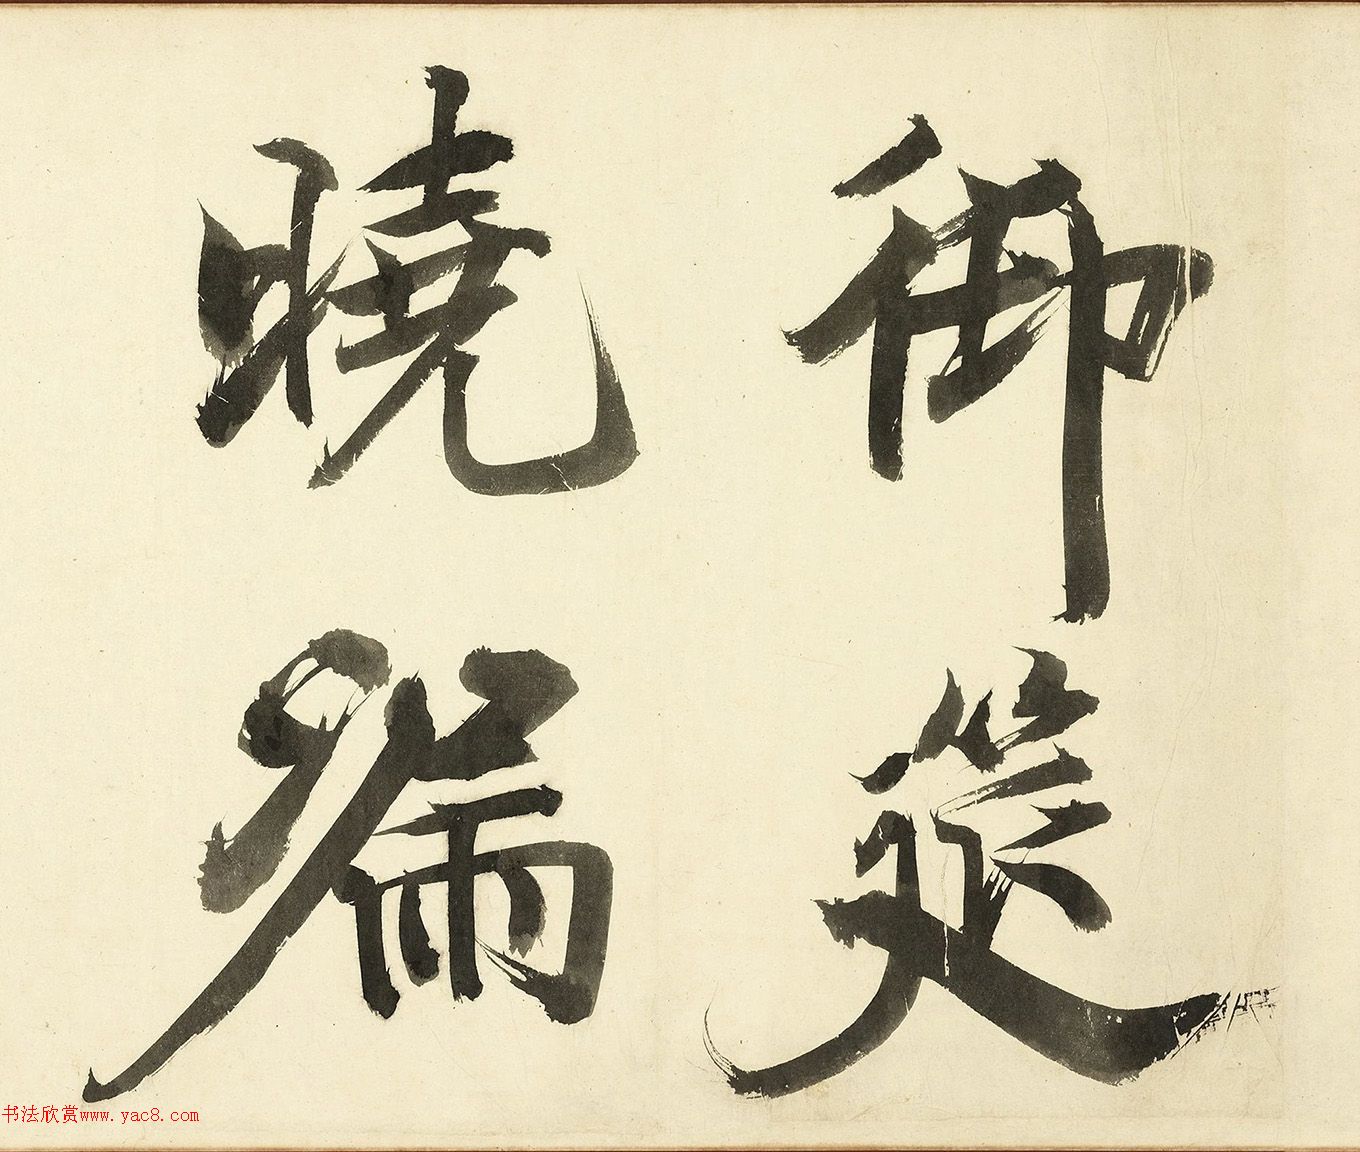 御筵
曉端
书法欣赏www.yac8.com